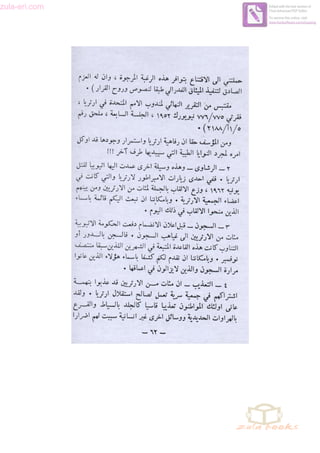 zula-eri.com
حملتني الى الاقتناع بتوافر هذه الرغبة المرجوة ، وان له العزم
الصادق لتنفيذ الميثاق الفدرالي طبقا لنصوص وروح القرار ) .
مقتبس من التقرير النهائي لمندوب الامم المتحدة في ارتريا ،
فقرتي ٧٧٦/٧٧٥ نيويورك ١٩٥٢ ، الجلسة السابعة ، ملحق رقم
١٥/أ/(٢١٨٨) .
ومن المؤسف حقا ان رفاهية ارتريا واستمرار وجودها قد اوكل
امره لمجرد النوايا الطيبة التي سيبديها طرف آخر !!!
٢ ــ الرشاوى ــ وهذه وسيلة اخرى عمدت اليها اثيوبيا لقتل
ارتريا . ففي احدى زيارات الامبراطور لارتريا والتي كانت في
يونيه ١٩٦٢ ، وزع الالقاب بالجملة لمئات من الارتريين ومن بينهم
اعضاء الجمعية الارترية . وبامكاننا ان نبعث اليكم قائمة باسماء
الذين منحوا الالقاب في ذلك اليوم .
٣ ــ السجون ــ قبل اعلان الانضمام دفعت الحكومة الاثيوبية
مئات من الارتريين الى غياهب السجون . فالسجن بالدور أو
التناوب كانت هذه القاعدة المتبعة في الشهرين اللذين سبقا منتصف
نوفمبر . وبامكاننا ان نقدم لكم كشفا باسماء هؤلاء الذين عانوا
مرارة السجون والذين لا يزالون في اعماقها .
٤ ــ التعذيب ــ ان مئات من الارتريين قد عذبوا بتهمة
اشتراكهم في جمعية سرية تعمل لصالح استقلال ارتريا . ولقد
عانى اولئك المواطنون تعذيبا قاسيا كالجلد بالسياط والقرع
بالهراوات الحديدية ووسائل اخرى غير انسانية سببت لهم اضرارا
ــ ٦٢ ــ
zula books